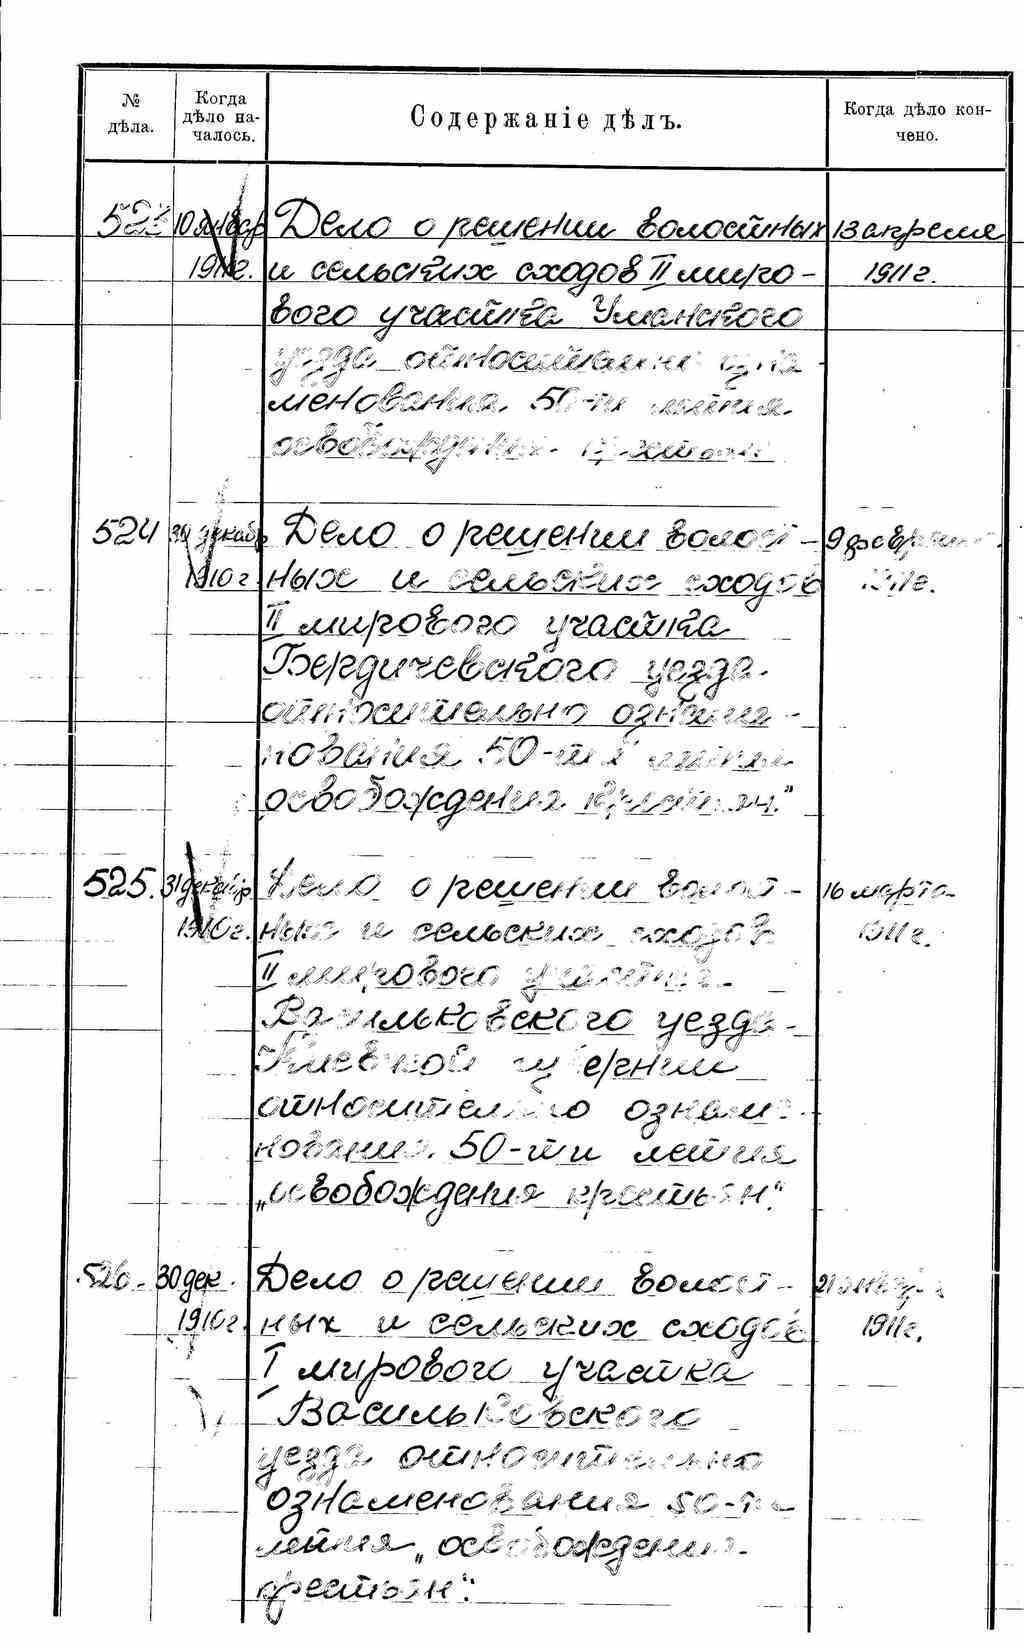 № дѣла.
Когда дѣло на-
чалось.
Содержаніе дѣлъ.
Когда дѣло кон-
чено.
523 10 январ Дело о решении волостных 13 апреля
1911г. и сельских сходов II миро- 1911г.
вого участка Уманского
уезда относительно озна-
менования 50-ти летия
освобождения крестьян
524 30 декабр Дело о решении волост- 9 февраля
1910г. ных и сельских сходов 1911г.
II мирового участка
Бердичевского уезда
относительно ознаме-
нования 50-ти летия
освобождения крестьян."
525. 31 декабр Дело о решении волост- 16 марта
1910г. ных и сельских сходов 1911г.
II мирового участка
Васильковского уезда
Киевской губернии
относительно ознаме-
нования 50-ти летия
„освобождения крестьян".
526 30 дек. Дело о решении волост- 21 января
1910г. ных и сельских сходов 1911г.
I мирового участка
Васильковского
уезда относительно
ознаменования 50-ти
летия „освобождения
крестьян".